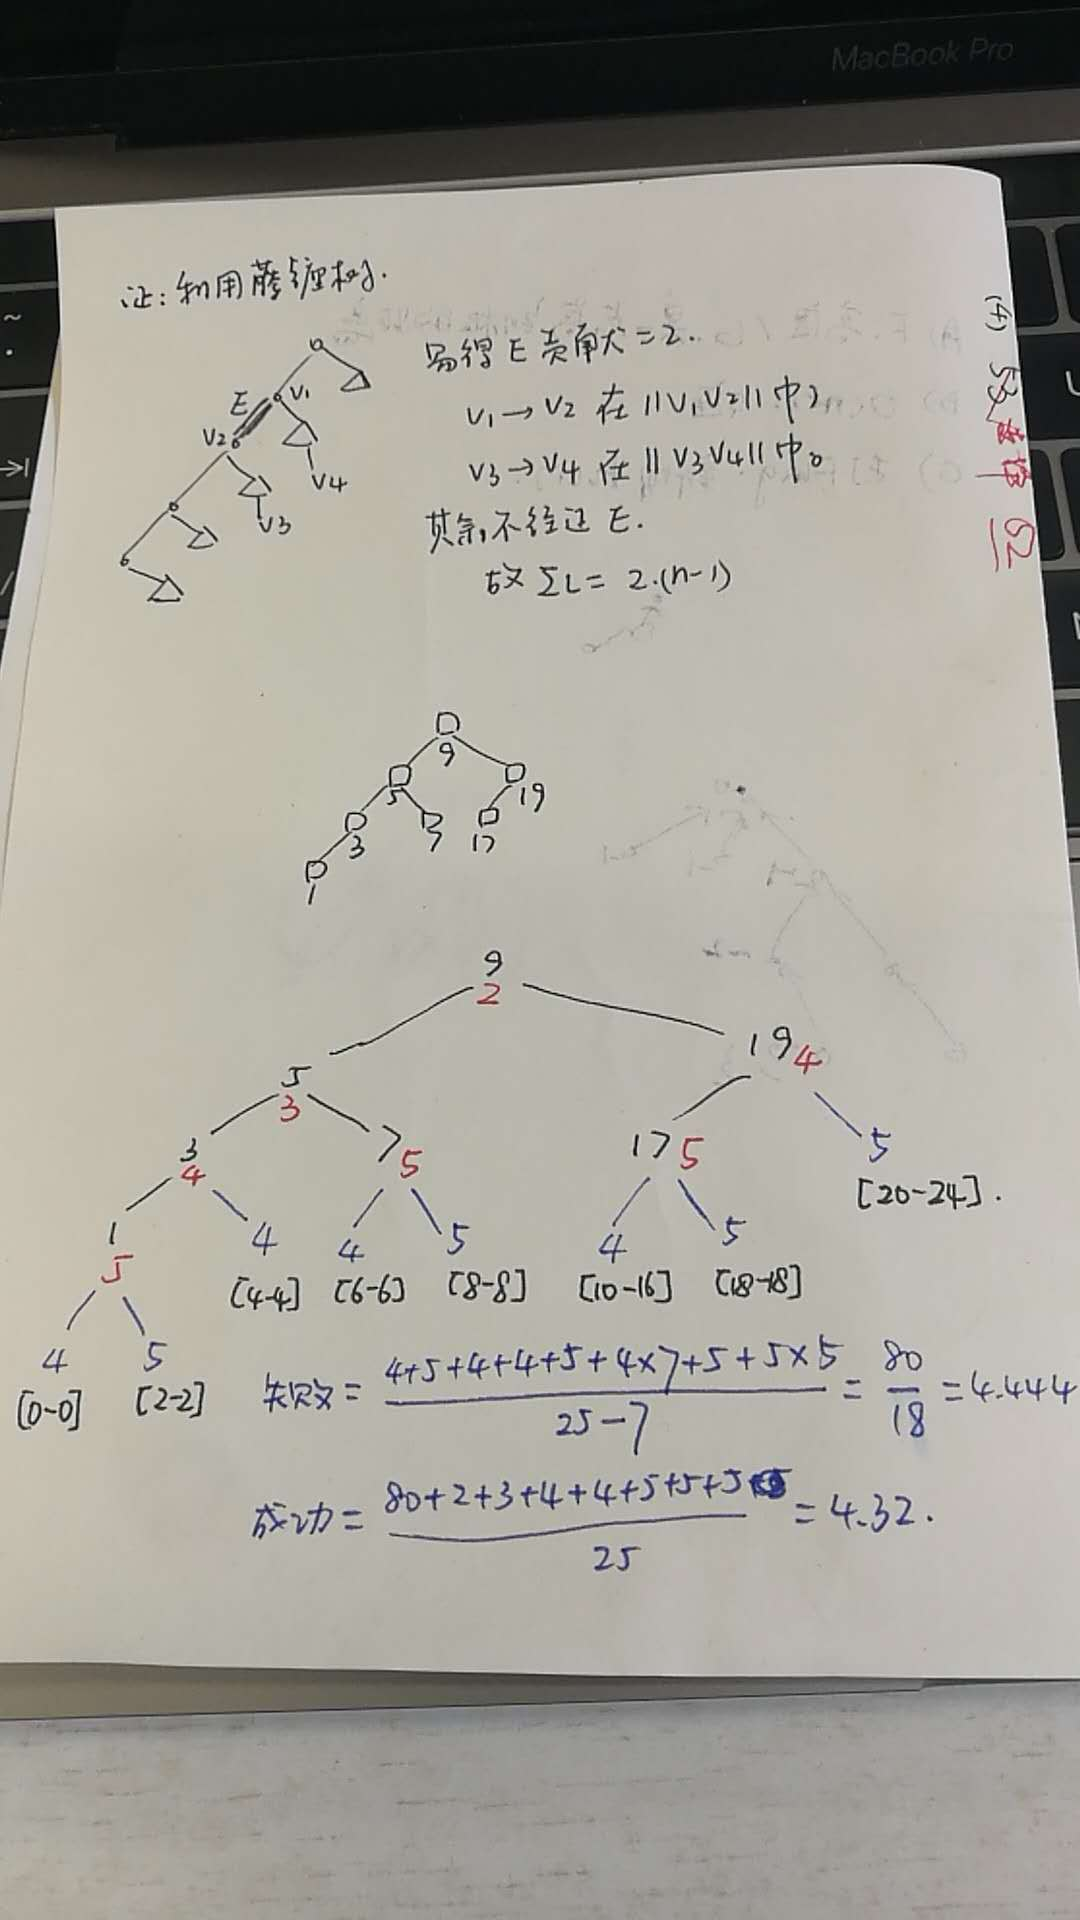 MacBook Pro
证:利用藤缠树.
易得 E 贡献=2.
V1→V2 在 ||V1V2|| 中,
V3→V4 在 || V3V4|| 中。
其余,不经过 E.
故 ΣL= 2.(n-1)
E V1
V2
V4
V3
(4)
9
5 19
3 7 17
1
9
2
19 4
5
3
3
4
7 5
17 5
5
[20-24].
1
5
4 4 5 4 5
[4-4] [6-6] [8-8] [10-16] [18-18]
4 5
[0-0] [2-2]
失败 = 4+5+4+4+5+4×7+5+5×5 / 25-7 = 80 / 18 =4.444
成功 = 80+2+3+4+4+5+5+5 / 25 = 4.32.